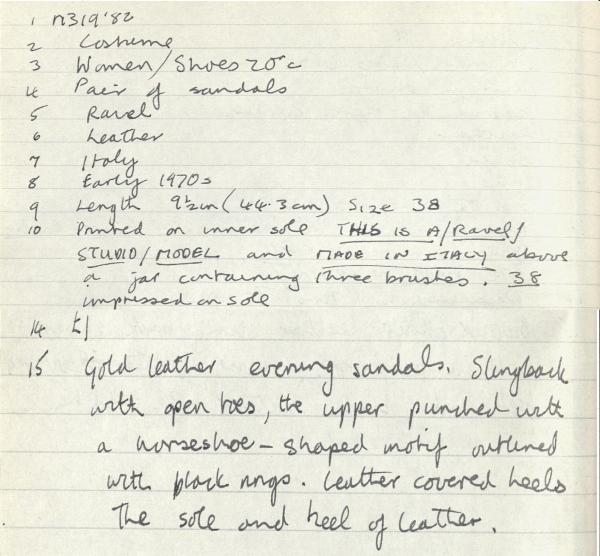 1 N319'82
2 Costume
3 Women/Shoes 20°c
4 Pair of sandals
5 Ravel
6 Leather
7 Italy
8 Early 1970s
9 Length 9½in (44.3cm) Size 38
10 Printed on inner sole THIS IS A/Ravel/
STUDIO/MODEL and MADE IN ITALY above
a jar containing three brushes. 38
impressed on sole
14
15 Gold leather evening sandals. Slingback
with open toes, the upper punched with
a horseshoe-shaped motif outlined
with black rings. Leather covered heels
The sole and heel of leather.